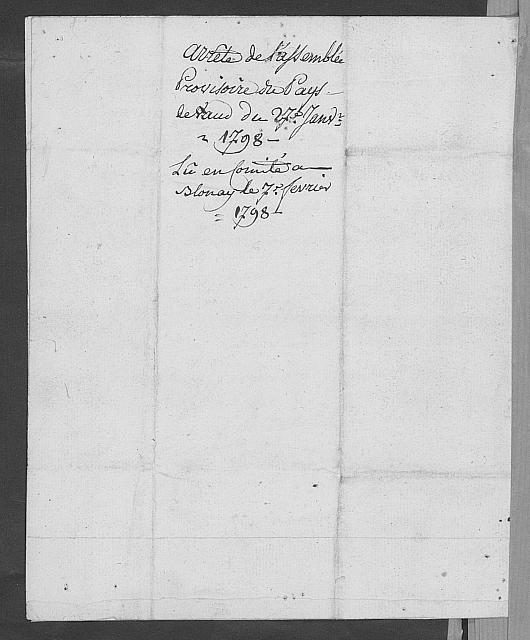 Arrêté de l'assemblée
Provisoire du Pays
de Vaud du 27e Janvr
1798
Lû en Comité a
Blonay le 7e fevrier
1798